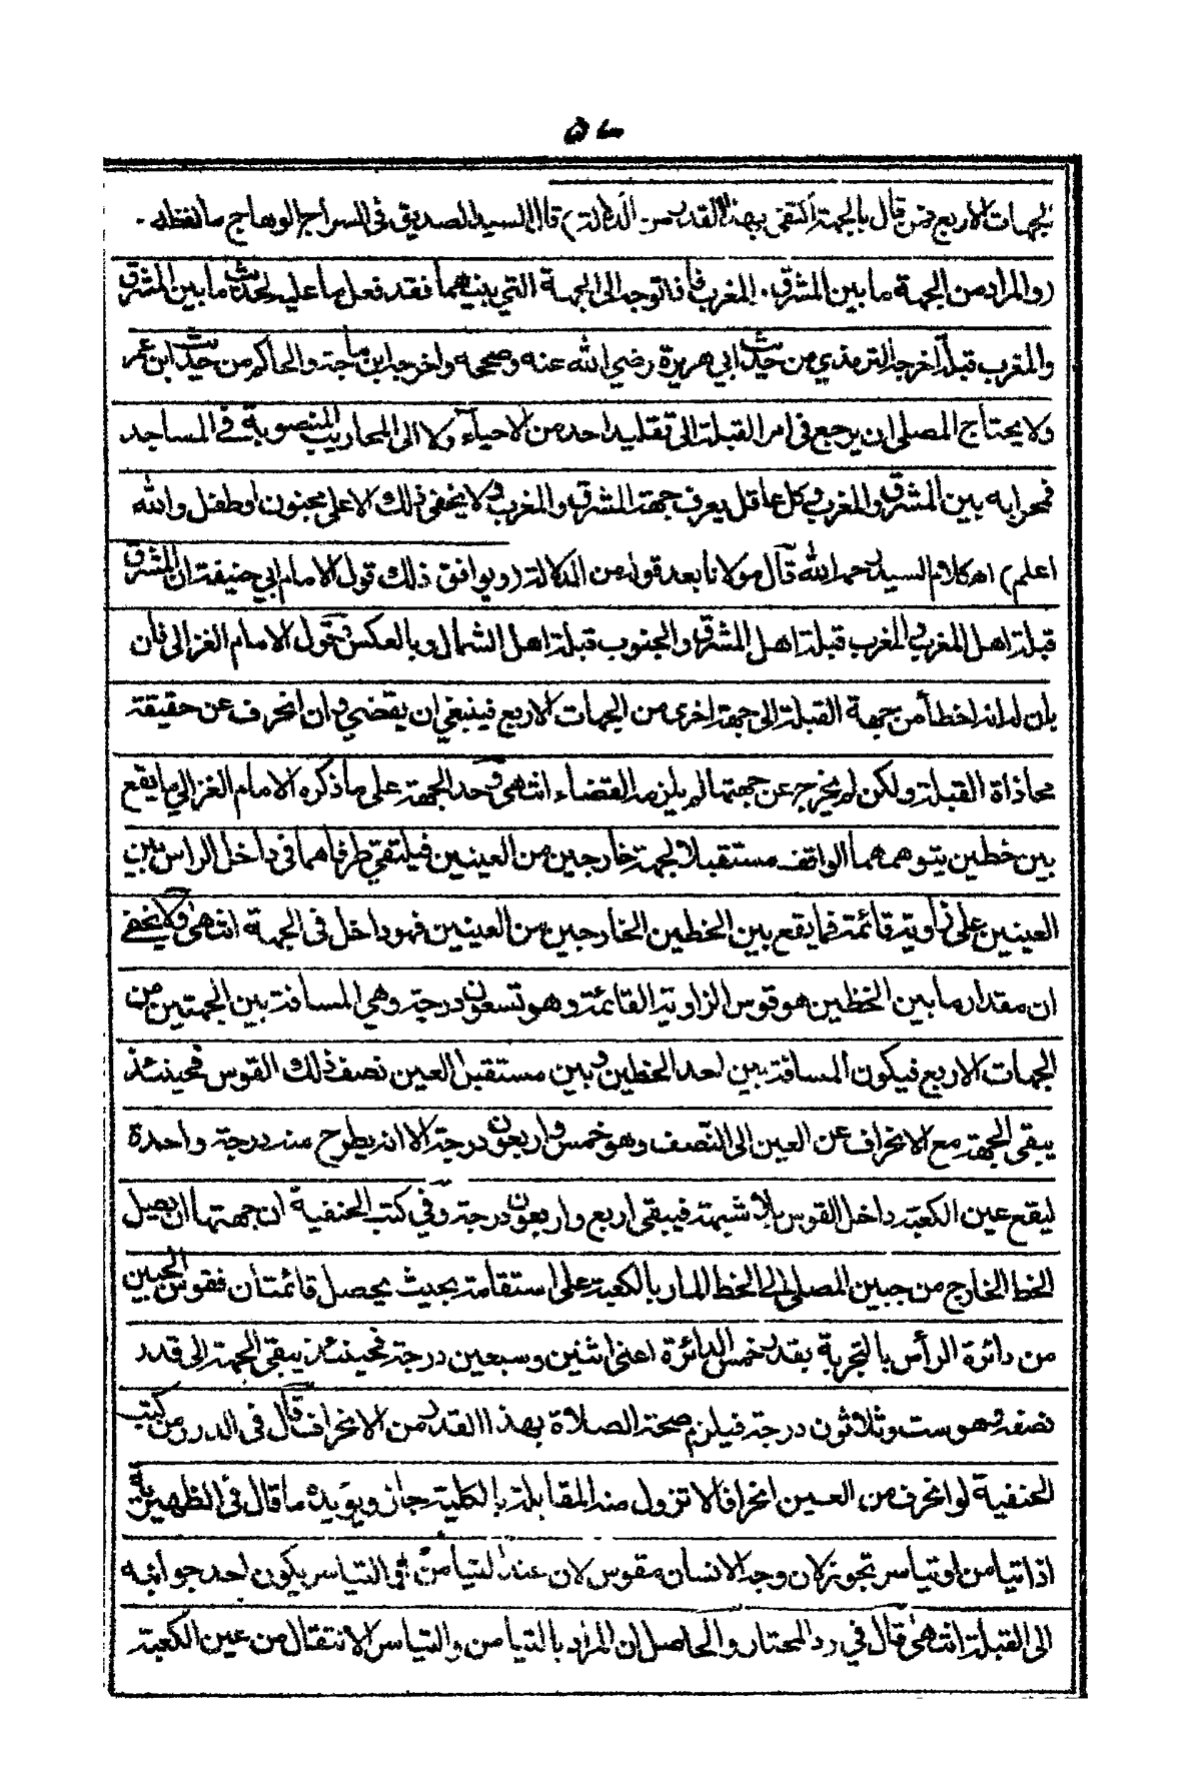 ٥٧
الجهات الاربع فمن قال بالجهة اكتفى بهذا القدر من الدلالة) قال السيد الصديق في السراج الوهاج ما لفظه
(والمراد من الجهة ما بين المشرق والمغرب فاذا توجه الى الجهة التي بينهما فقد فعل ما عليه لحديث ما بين المشرق
والمغرب قبلة اخرجه الترمذي من حديث ابي هريرة رضي الله عنه وصححه واخرجه ابن ماجة والحاكم من حديث ابن عمر
ولا يحتاج المصلي ان يرجع في امر القبلة الى تقليد احد من الاحياء ولا الى المحاريب المنصوبة في المساجد
فمحرابه بين المشرق والمغرب وكل عاقل يعرف جهة المشرق والمغرب ولا يخفى ذلك الا على مجنون او طفل والله
اعلم) اه كلام السيد رحمه الله قال مولانا بعد قوله من الدلالة (ويوافق ذلك قول الامام ابي حنيفة ان المشرق
قبلة اهل المغرب والمغرب قبلة اهل المشرق والجنوب قبلة اهل الشمال وبالعكس وقول الامام الغزالي فان
بان له انه اخطأ من جهة القبلة الى جهة اخرى من الجهات الاربع فينبغي ان يقضي وان انحرف عن حقيقة
محاذاة القبلة ولكن لم يخرج عن جهتها لم يلزمه القضاء انتهى وحد الجهة على ما ذكره الامام الغزالي ما يقع
بين خطين يتوهمهما الواقف مستقبلا لجهة خارجين من العينين فيلتقي طرفاهما في داخل الراس بين
العينين على زاوية قائمة فما يقع بين الخطين الخارجين من العينين فهو داخل في الجهة انتهى ولا يخفى
ان مقدار ما بين الخطين هو قوس الزاوية القائمة وهو تسعون درجة وهي المسافة بين الجهتين من
الجهات الاربع فيكون المسافة بين احد الخطين وبين مستقبل العين نصف ذلك القوس فحينئذ
يبقى الجهة مع الانحراف عن العين الى النصف وهو خمس واربعون درجة الا انه يطرح منه درجة واحدة
ليقع عين الكعبة داخل القوس بلا شبهة فيبقى اربع واربعون درجة وفي كتب الحنفية ان جهتها ان يصل
الخط الخارج من جبين المصلي الى الخط المار بالكعبة على استقامة بحيث يحصل قائمتان فقوس الجبين
من دائرة الرأس بالتجربة بقدر خمس الدائرة اعني اثنين وسبعين درجة فحينئذ يبقى الجهة الى قدر
نصفه وهو ست وثلاثون درجة فيلزم صحة الصلاة بهذا القدر من الانحراف قال في الدرر من كتب
الحنفية لو انحرف من العين انحرافا لا تزول منه المقابلة بالكلية جاز ويؤيده ما قال في الظهيرية
اذا تيامن او تياسر تجوز لان وجه الانسان مقوس لان عند التيامن او التياسر يكون احد جوانبه
الى القبلة انتهى قال في رد المحتار والحاصل ان المراد بالتيامن والتياسر الانتقال من عين الكعبة